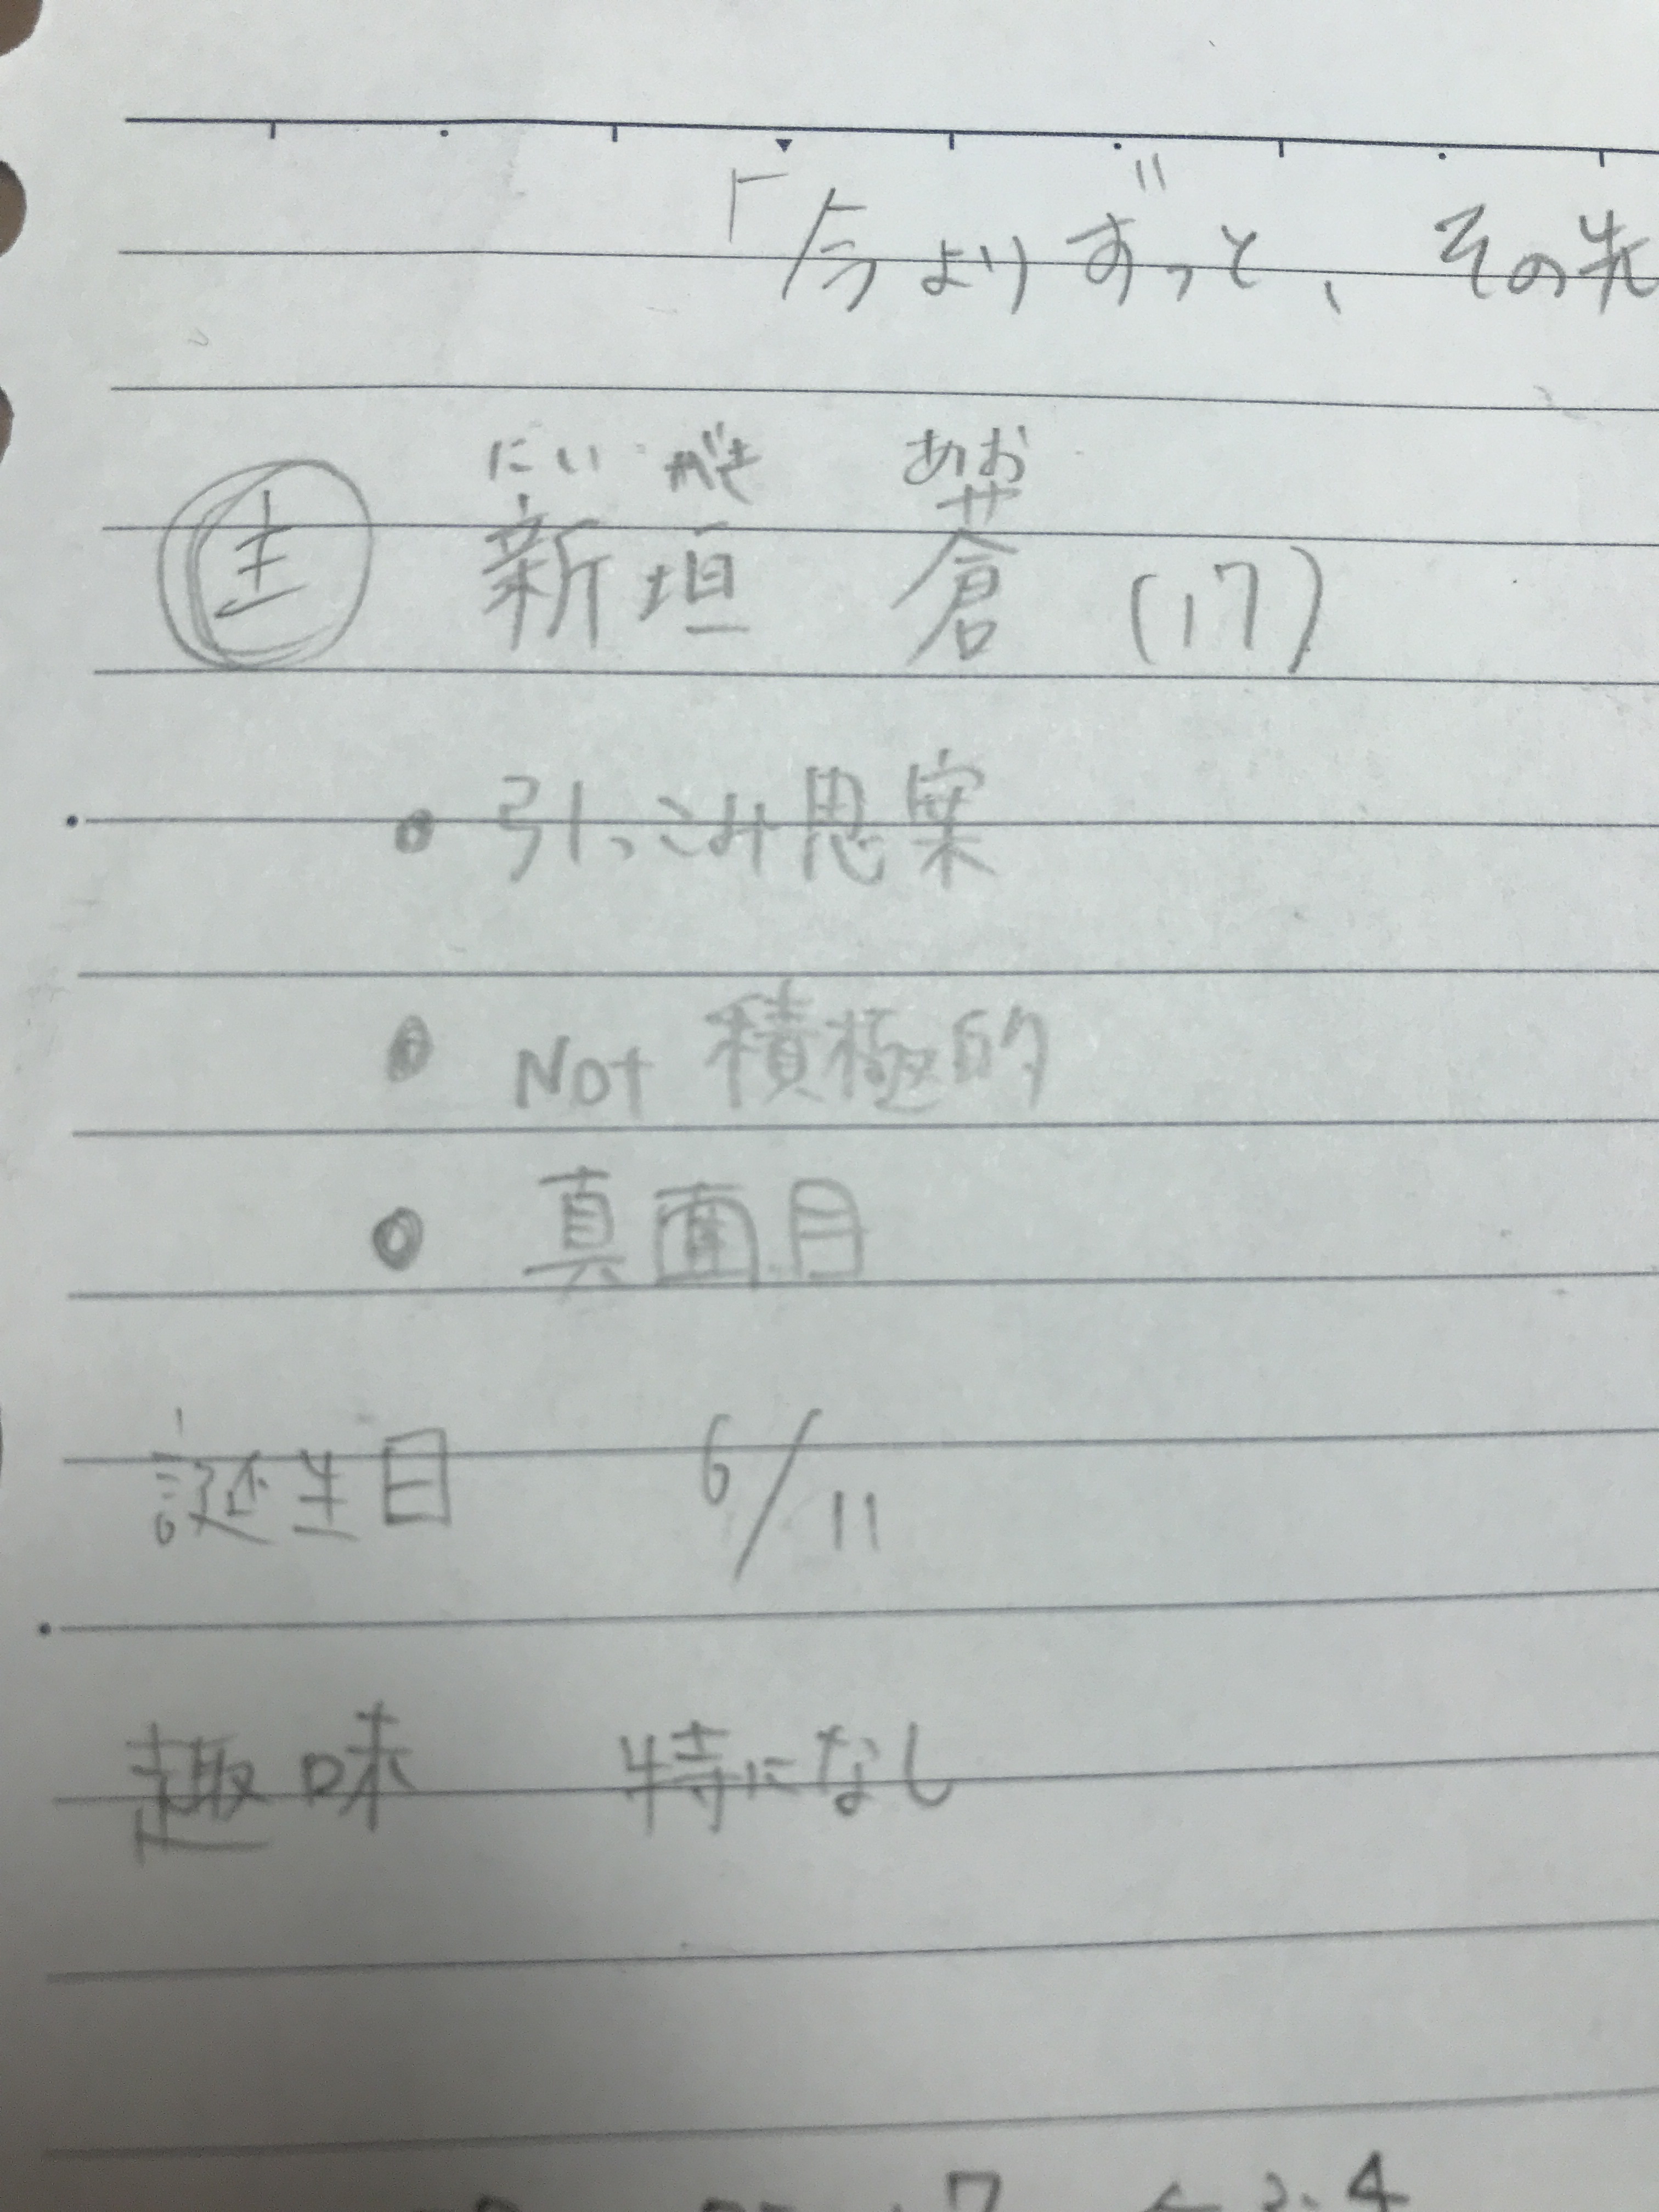 「今よりずっと、その先
にいがき あお
主 新垣 蒼 (17)
引っこみ思案
Not 積極的
真面目
誕生日 6/11
趣味 特になし